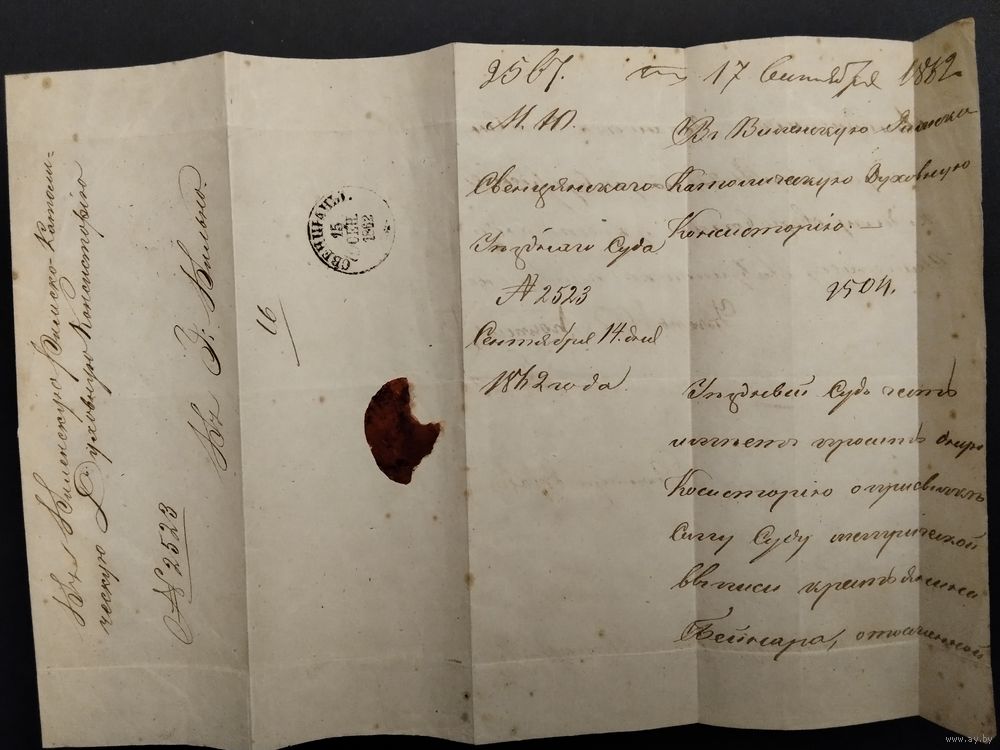 Въ Виленскую Римско-Католи-
ческую Духовную Консисторію
Въ Г. Вильно.
№ 2523
16
СВЕНЦІАНЫ.
15
СЕН.
1862
2567.
17 Сентября 1862
М. Ю.
Свенцянскаго
Уѣзднаго Суда
№ 2523
Сентября 14. дня
1862 года
Въ Виленскую Римско
Католическую Духовную
Консисторію.
2504.
Уѣздный Судъ честь
имѣетъ просить оную
Косисторію о присылкѣ
сему Суду метрической
выписи крестьянина
Бейнара,
www.ay.by